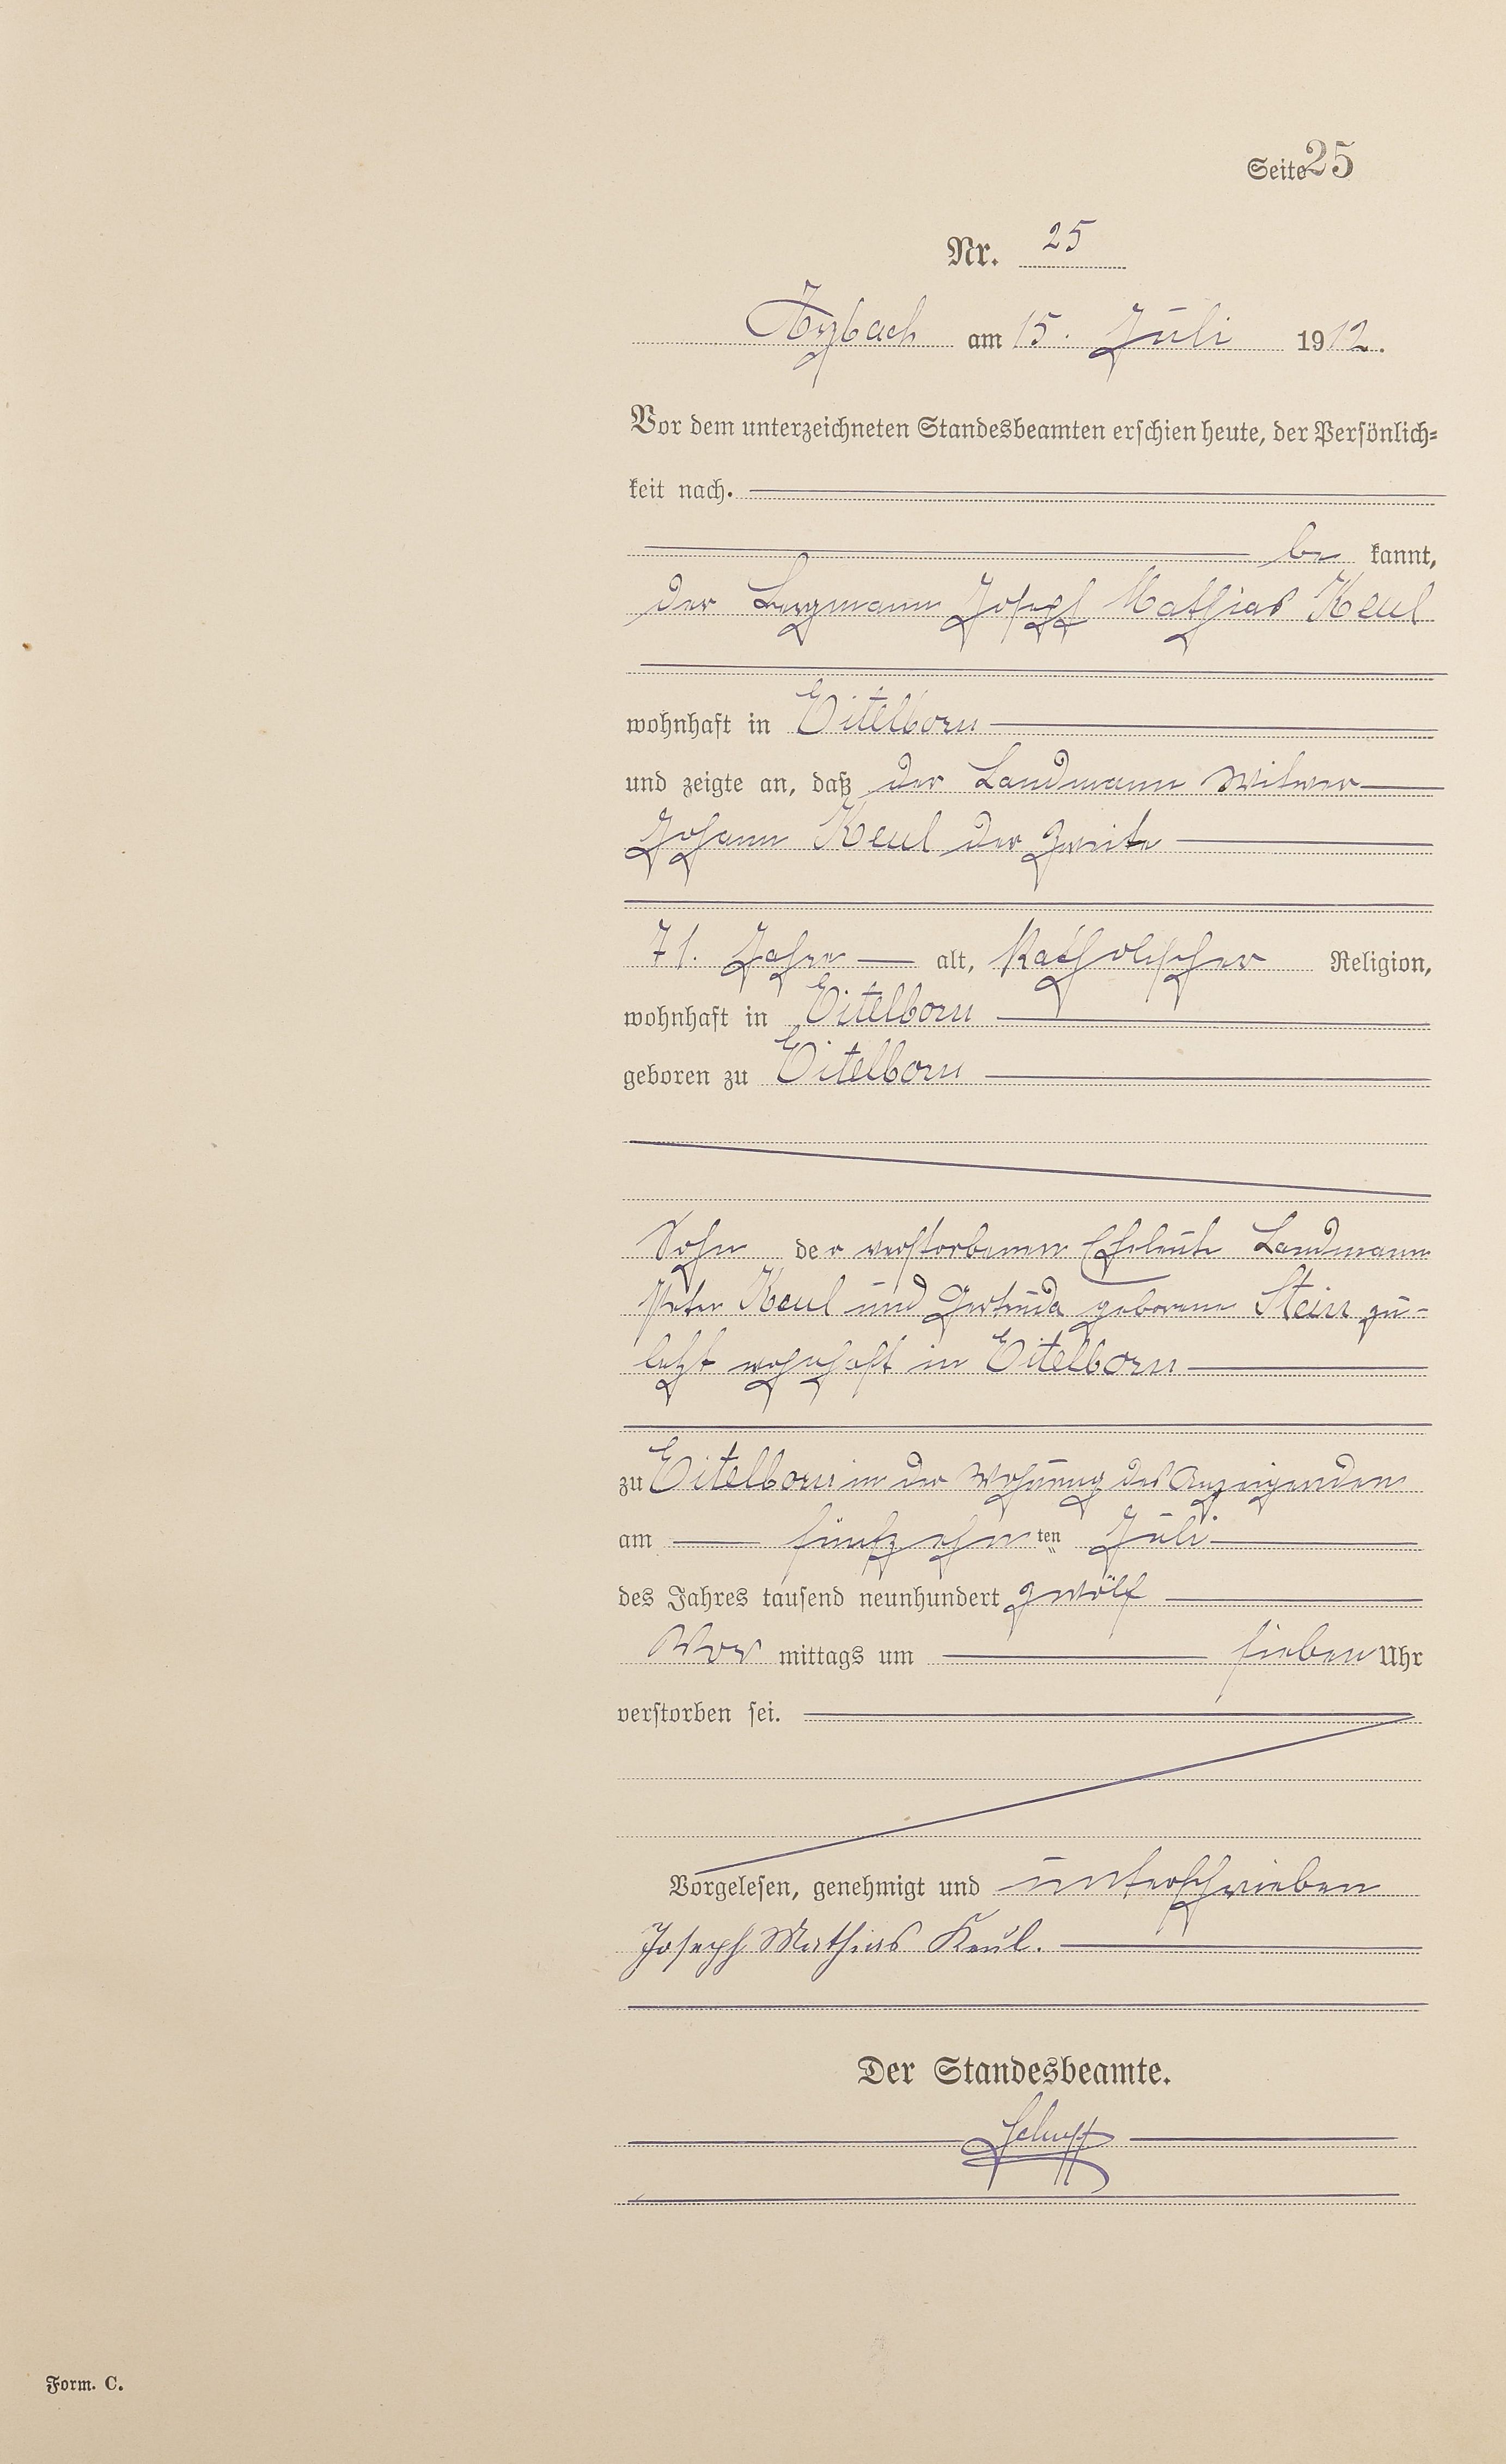 Seite 25
Nr. 25
Arzbach am 15. Juli 1912.
Vor dem unterzeichneten Standesbeamten erschien heute, der Persönlich-
keit nach.
be kannt,
der Bergmann Joseph Mathias Keul
wohnhaft in Eitelborn
und zeigte an, daß der Landmann Witwer
Johann Keul der Zweite
71. Jahre alt, katholischer Religion,
wohnhaft in Eitelborn
geboren zu Eitelborn
Sohn der verstorbenen Eheleute Landmann
Peter Keul und Gertruda geborene Stein zu-
letzt wohnhaft in Eitelborn
zu Eitelborn in der Wohnung des Anzeigenden
am fünfzehn ten Juli
des Jahres tausend neunhundert zwölf
Vor mittags um sieben Uhr
verstorben sei.
Vorgelesen, genehmigt und unterschrieben
Joseph Mathias Keul.
Der Standesbeamte.
Form. C.